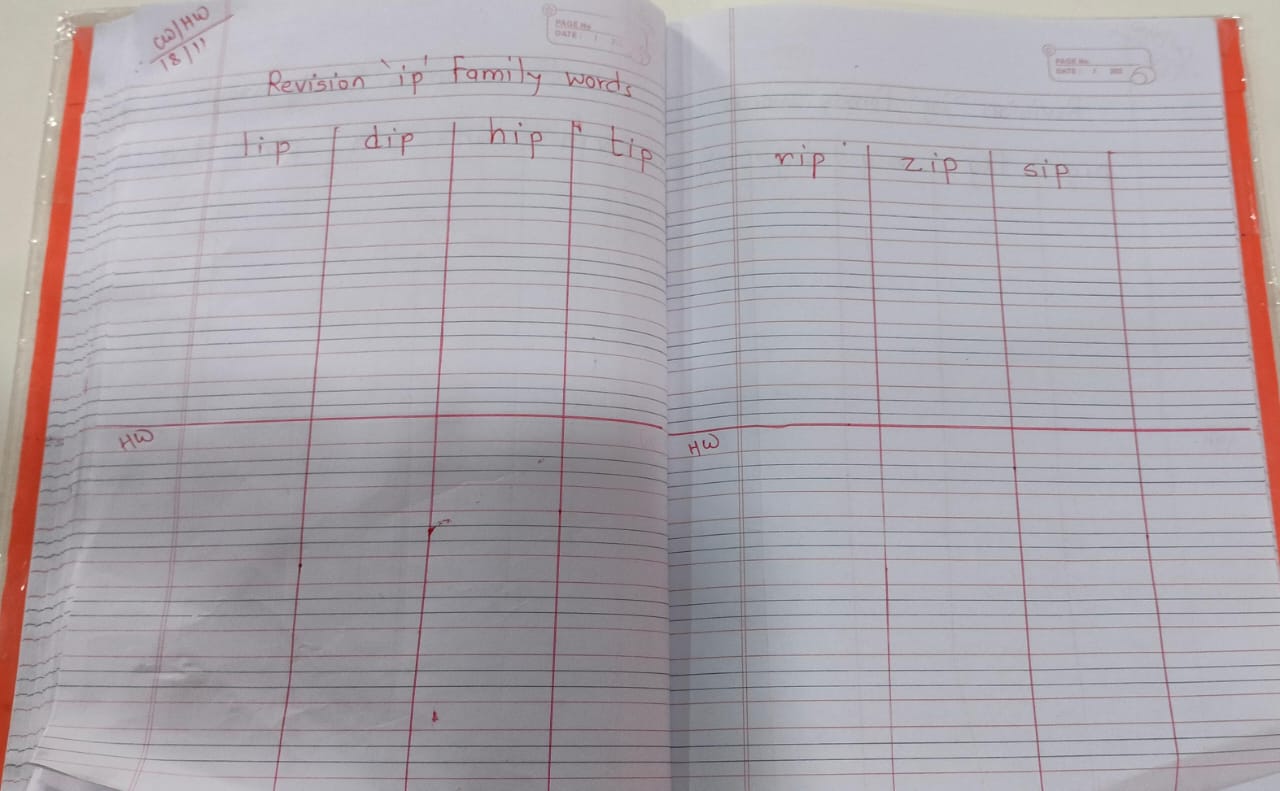 CW/HW
18/11
PAGE No.
DATE : / /
Revision 'ip' Family words
lip dip hip tip
HW
PAGE No.
DATE : / / 202
rip zip sip
HW